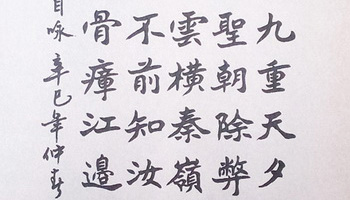 九重天夕
聖朝除弊
雲橫秦嶺
不前知汝
骨瘴江邊
咏 辛巳年仲春